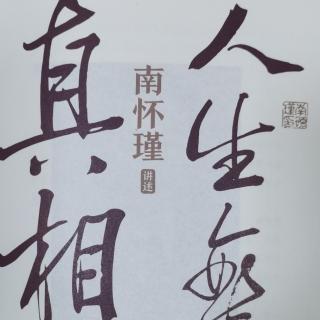 人生無
真相
南怀瑾
讲述